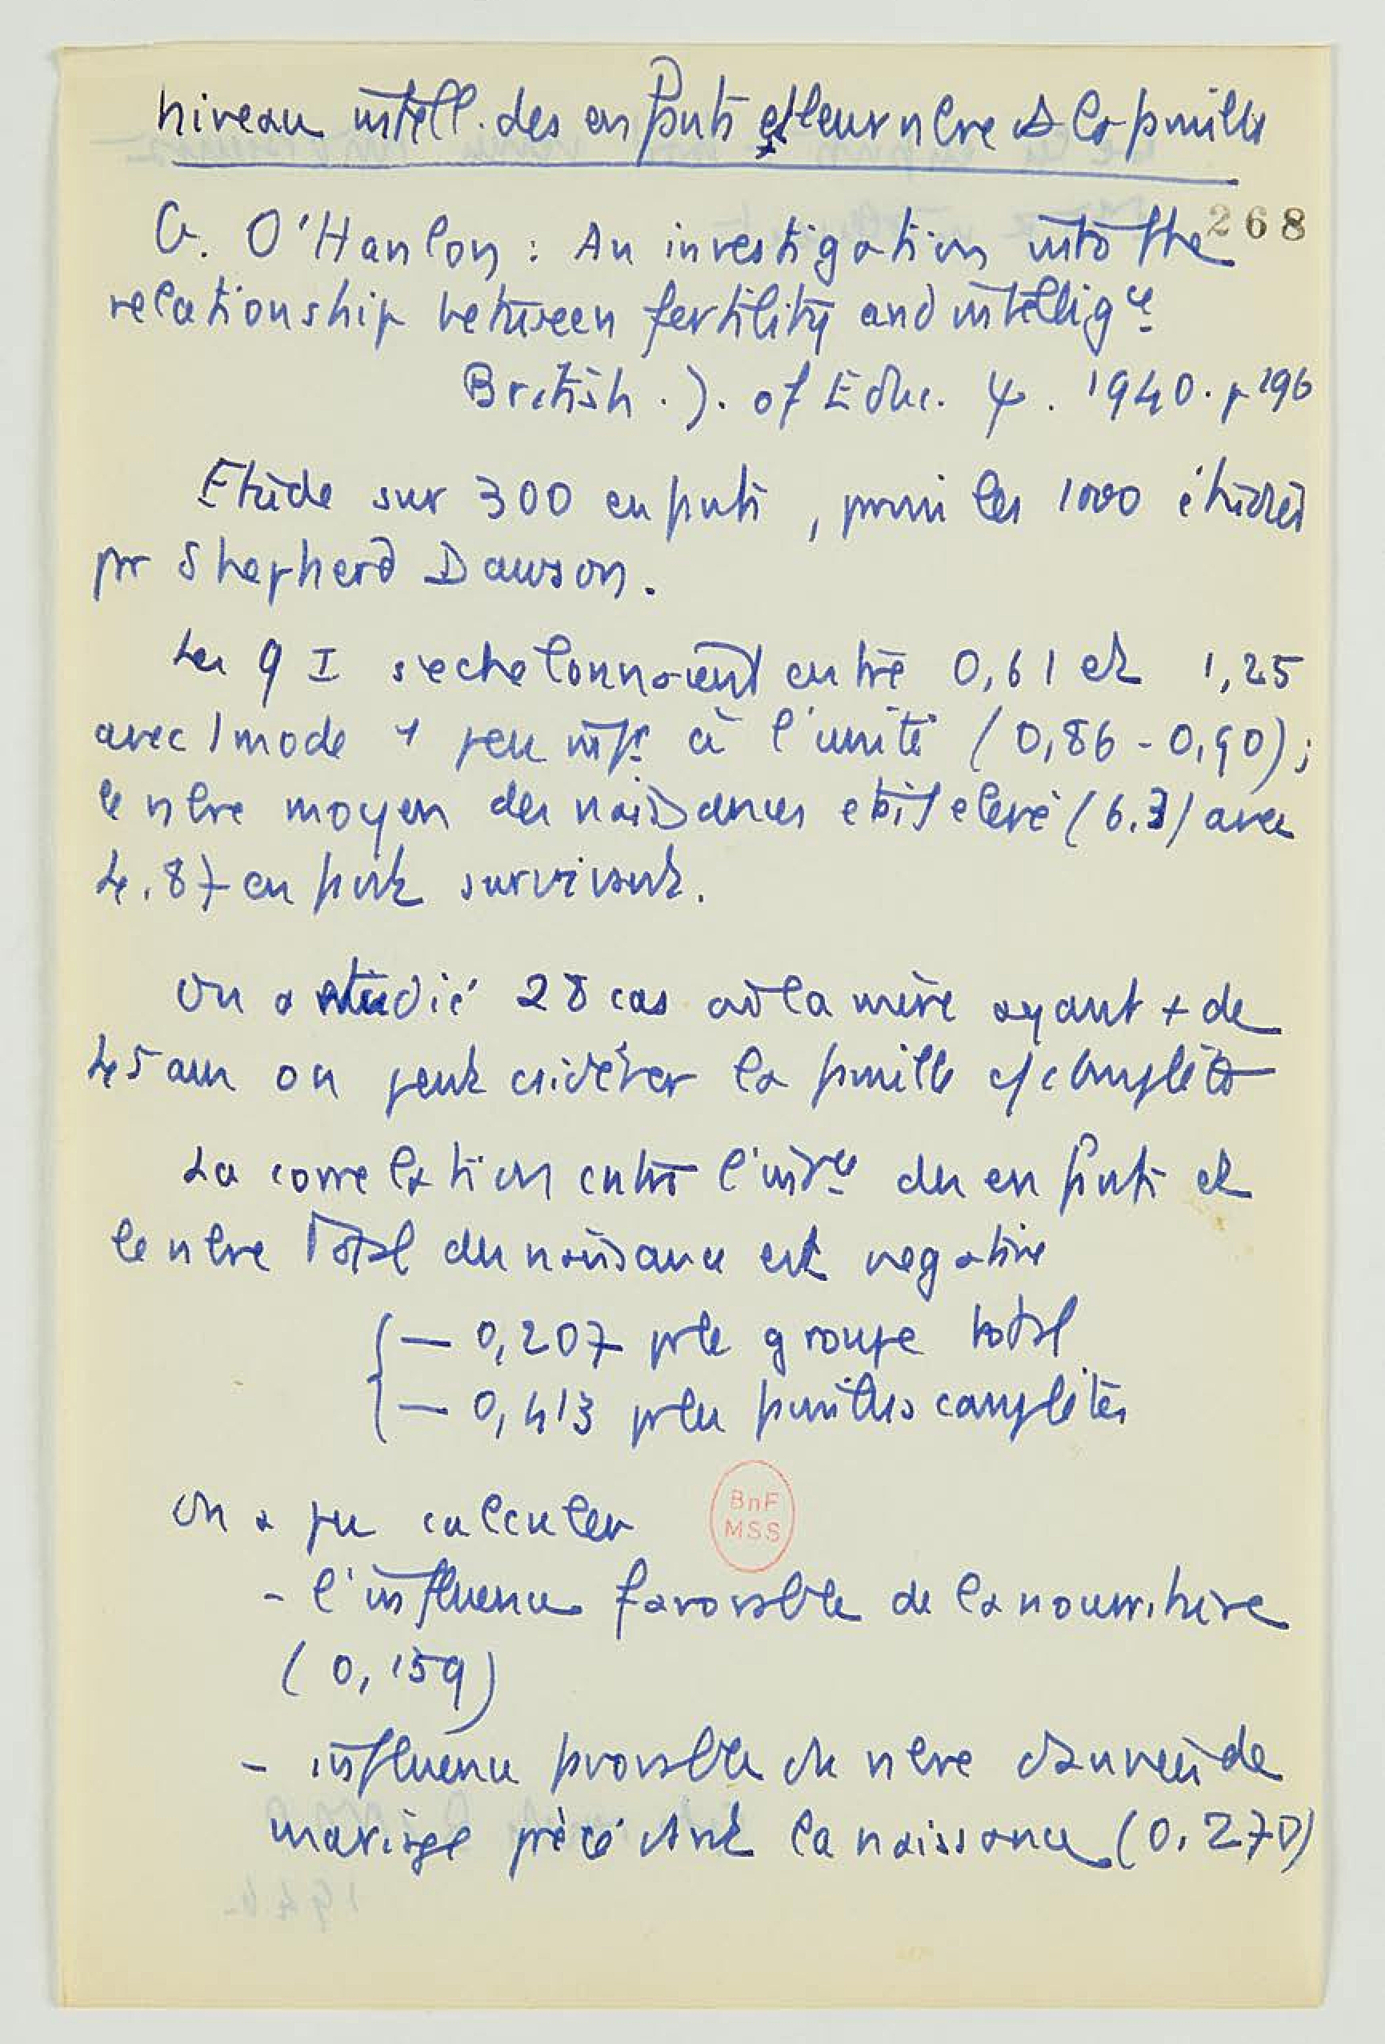 niveau intell. des enfants et leur nbre ds la famille
268
G. O'Hanlon : An investigation into the
relationship between fertility and intellig ce
British . J. of Educ. ψ . 1940. p 196
Etude sur 300 enfants , parmi les 1000 étudiés
par Shepherd Dawson.
Les Q I s'echelonnaient entre 0,61 et 1,25
avec 1 mode 1 peu inf r à l'unité (0,86 - 0,90) ;
le nbre moyen des naissances etait elevé (6.3) avec
4.87 enfants survivants.
On a étudié 28 cas où la mère ayant + de
45 ans on peut csidérer la famille c/ complète
La correlation entre l'int ce des enfants et
le nbre total des naissances est negative
— 0,207 pr le groupe total
— 0,413 pr les familles complètes
On a pu calculer
BnF
MSS
- l'influence favorable de la nourriture
(0,159)
- influence favorable du nbre d'années de
mariage précédant la naissance (0.270)